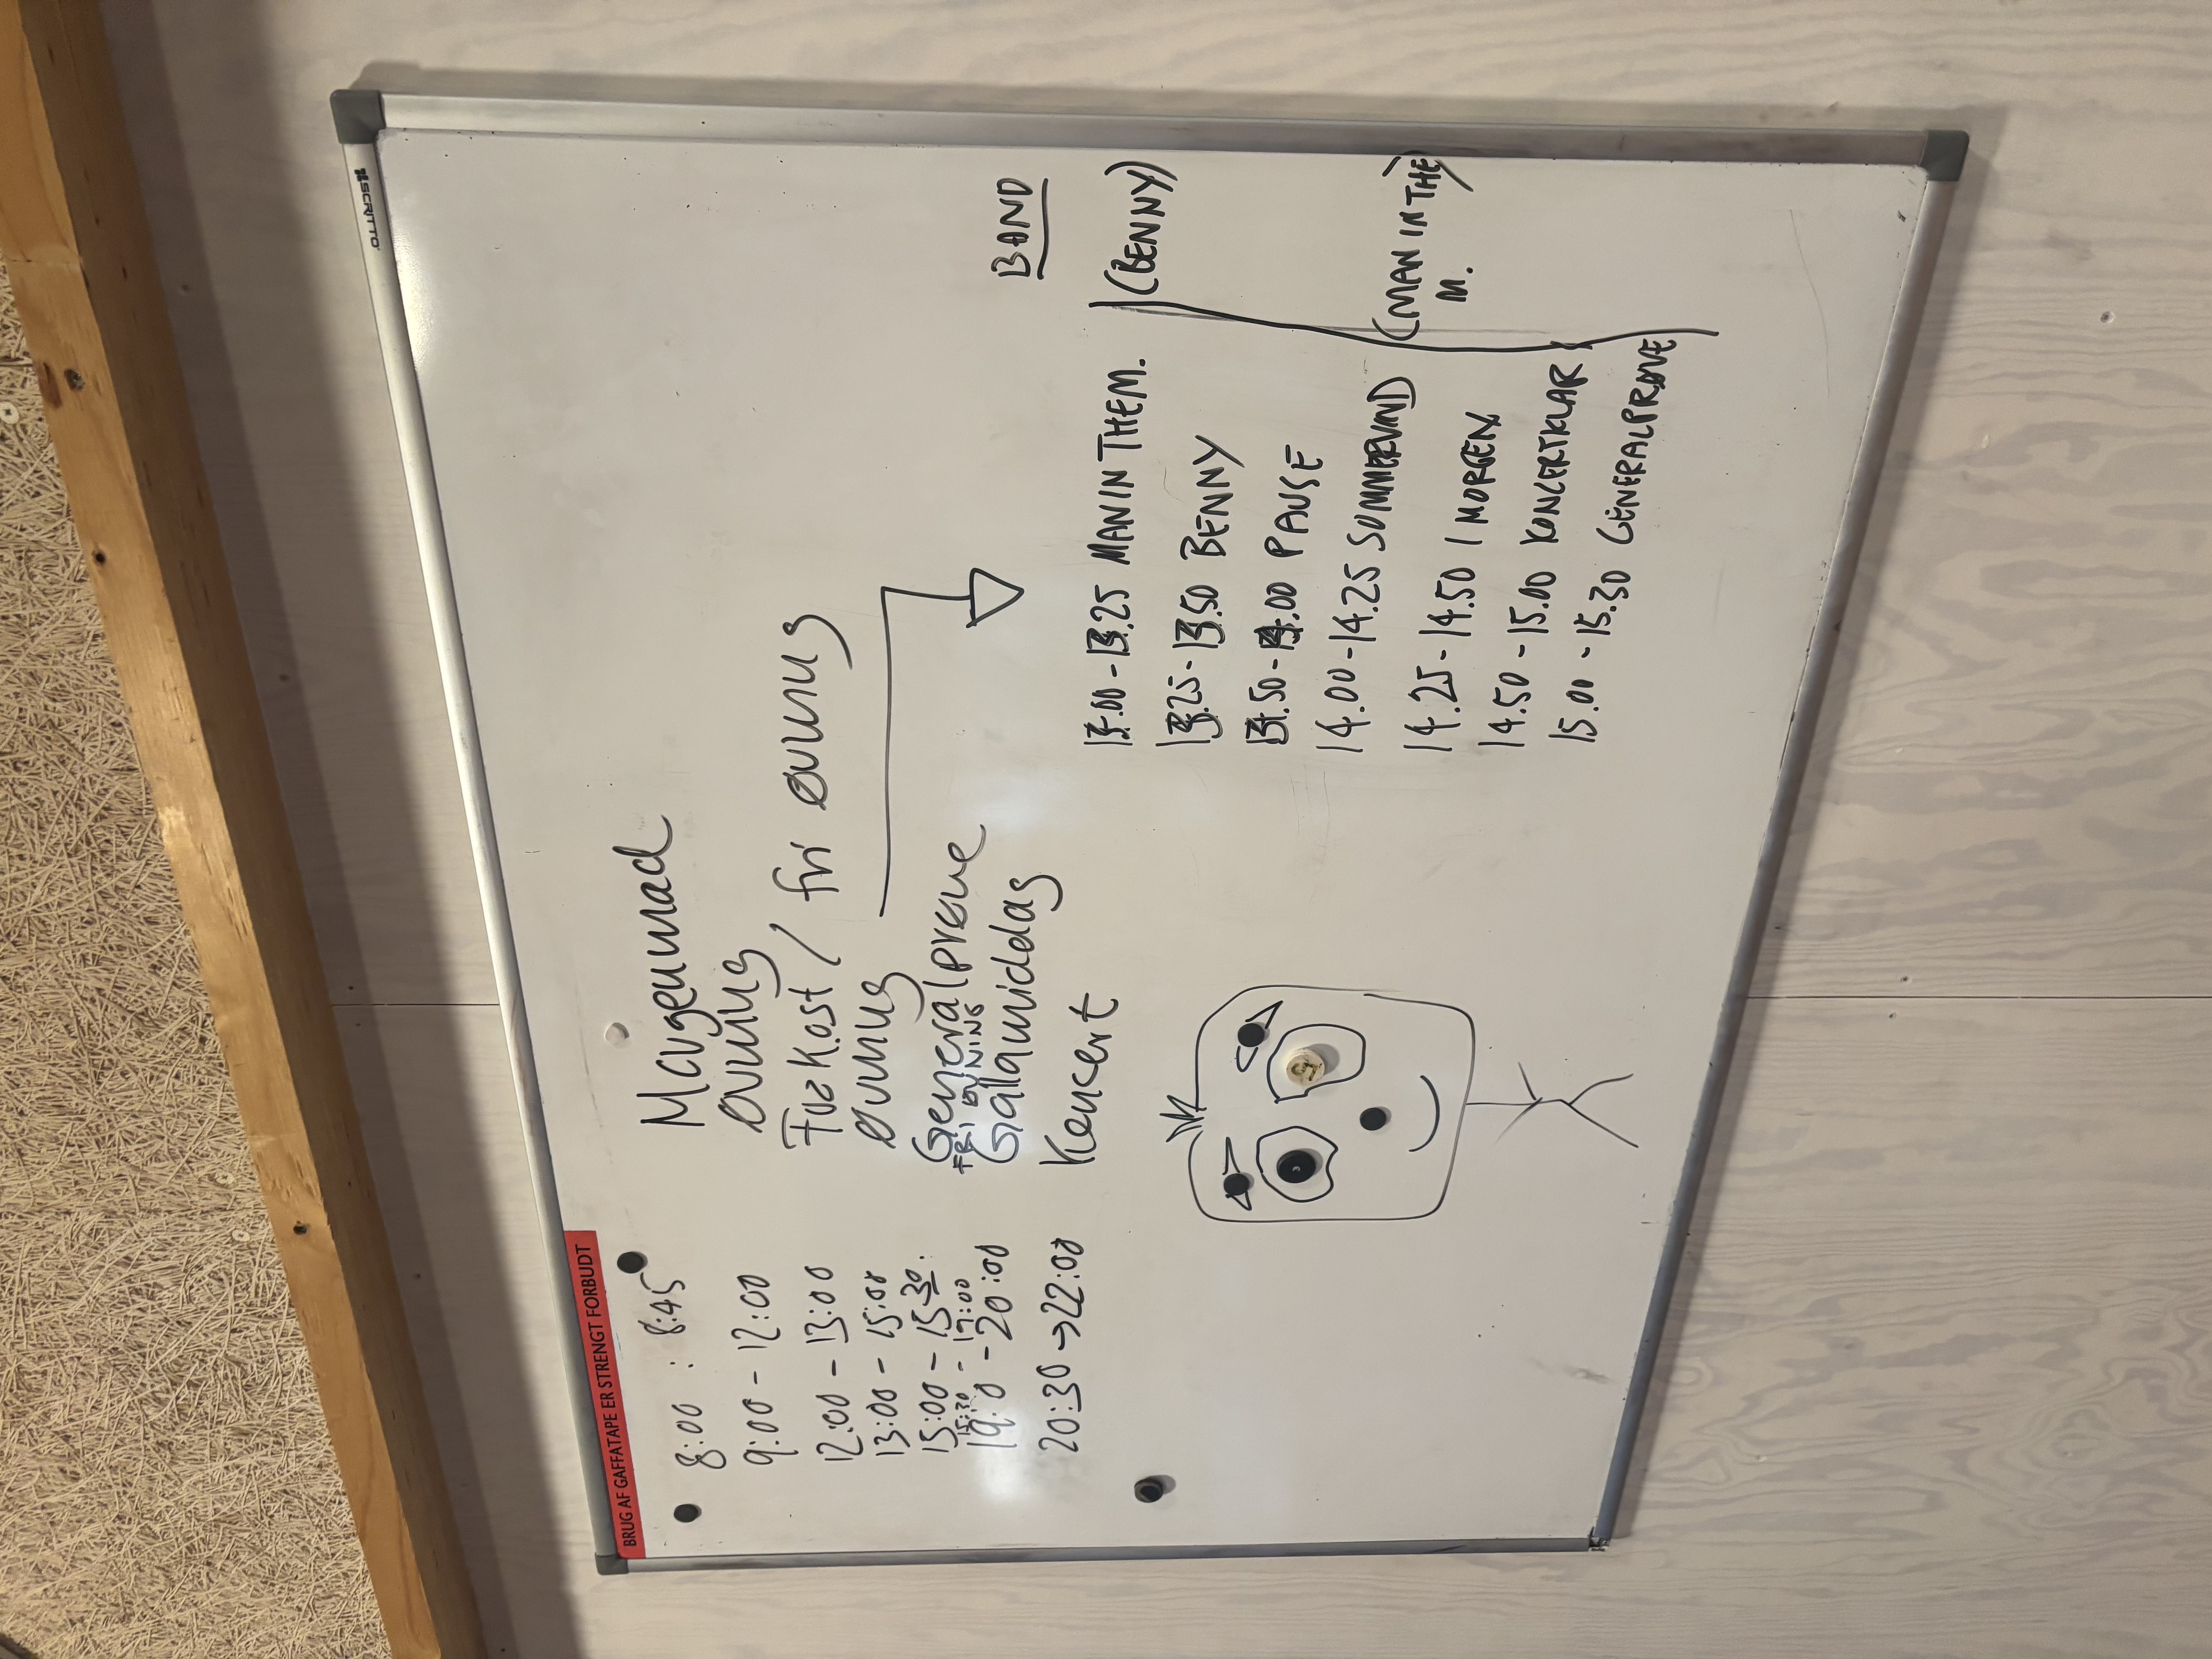 SCRITTO
BRUG AF GAFFATAPE ER STRENGT FORBUDT
8:00 : 8:45 Morgenmad
9:00 - 12:00 øvning
12:00 - 13:00 Frokost / fri øvning
13:00 - 15:00 øvning
15:00 - 15:30. Generalprøve
15:30 - 17:00 FRI ØVNING
19:0 - 20:00 Gallamiddag
20:30 → 22:00 Koncert
BAND
13.00 - 13.25 MAN IN THE M. (BENNY)
13.25 - 13.50 BENNY
13.50 - 14.00 PAUSE
14.00 - 14.25 SOMMERVIND (MAN IN THE M.
14.25 - 14.50 I MORGEN
14.50 - 15.00 KONCERTKLAR
15.00 - 15.30 GENERALPRØVE